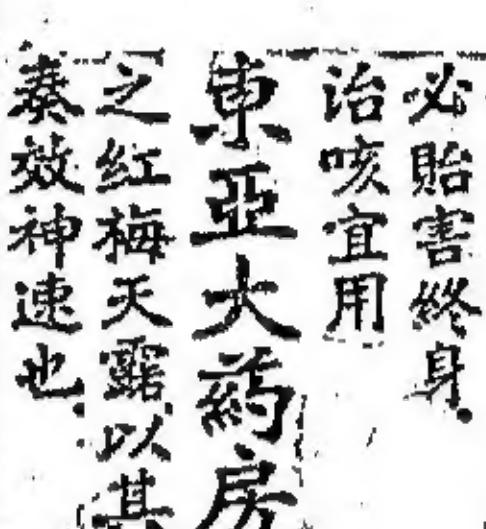 必貽害終身
治咳宜用
東亞大葯房
之紅梅天露以其
奏效神速也